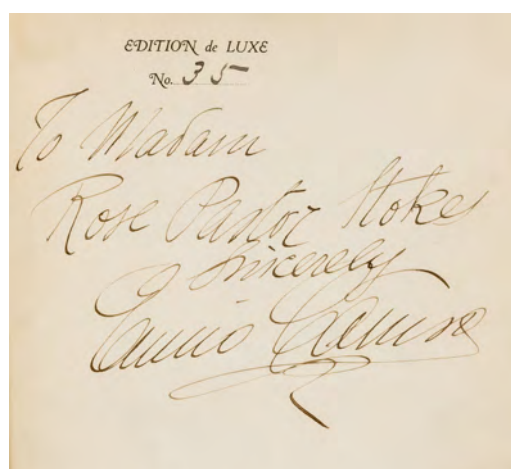 EDITION de LUXE
No. 35
To Madam
Rose Pastor Stokes
Sincerely
Enrico Caruso